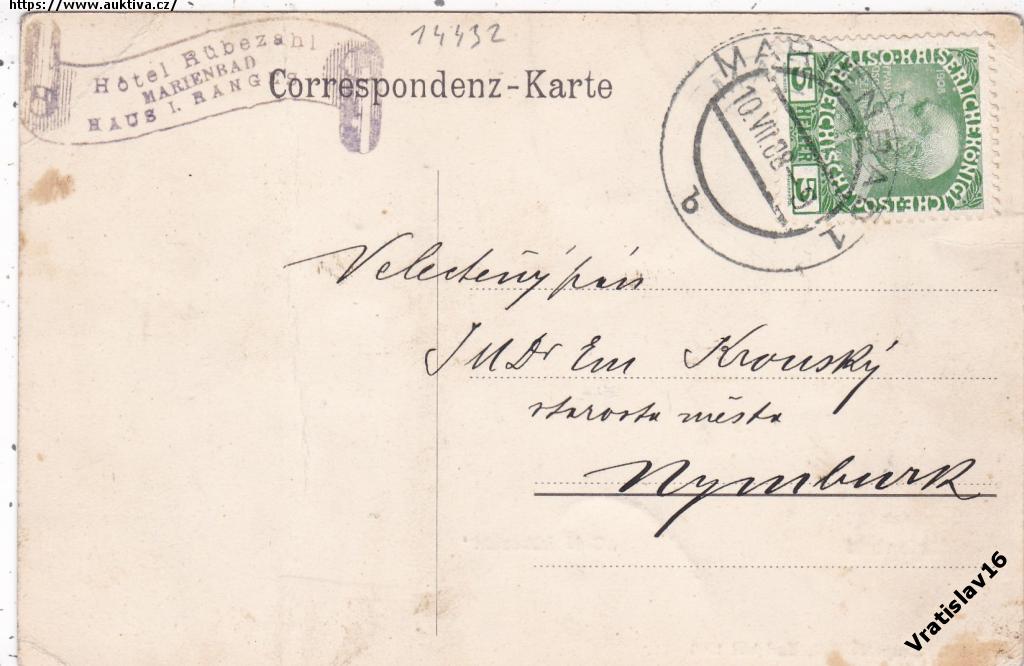 https://www.auktiva.cz/
14432
Hôtel Rübezahl
MARIENBAD
HAUS I. RANGES
Correspondenz-Karte
MARIENBAD 1
10.VII.08
b
5 HELLER 5
1908
KAISERLICHE KÖNIGLICHE
Velectěný pán
JUDr Em Kronský
starosta města
Nymburk
Vratislav16